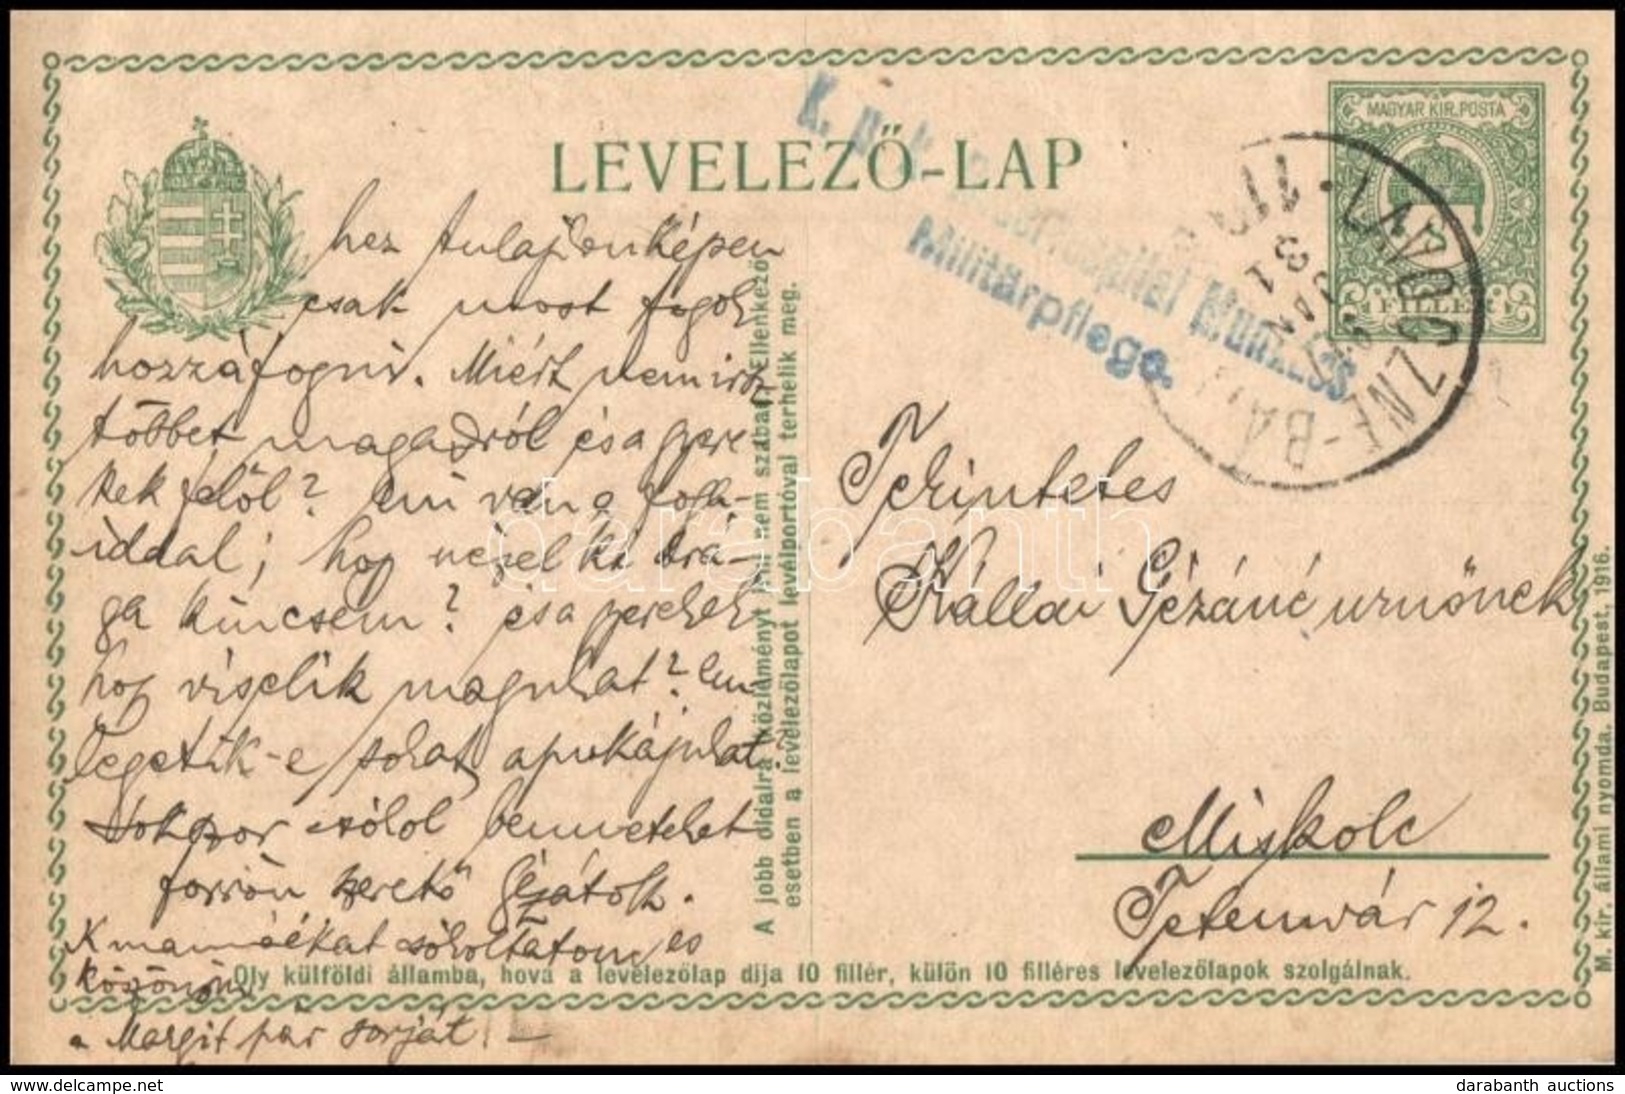 MAGYAR KIR. POSTA
LEVELEZŐ-LAP
FILLÉR
LAVOCZNE-BA
Militärpflege.
hez tulajdonképen
csak most fogok
hozzáfogni. Miért nem irsz
többet magadról és a gyere
kek felől? mi van a foga-
iddal; hogy nézel ki drá-
ga kincsem? és a gyerekek
hogy viselik magukat? em-
legetik-e sokat apukájukat?
Sokszor csókol benneteket
forrón szerető Gézátok.
K mamáékat csókoltatom és
köszönöm
a Margit pár sorját.
A jobb oldalra közleményt írni nem szabad. Ellenkező
esetben a levelezőlapot levélportóval terhelik meg.
Tekintetes
Kállai Gézáné urnőnek
Miskolc
Tetemvár 12.
Oly külföldi államba, hová a levelezőlap díja 10 fillér, külön 10 filléres levelezőlapok szolgálnak.
M. kir. állami nyomda. Budapest, 1916.
darabanth
darabanth auctions